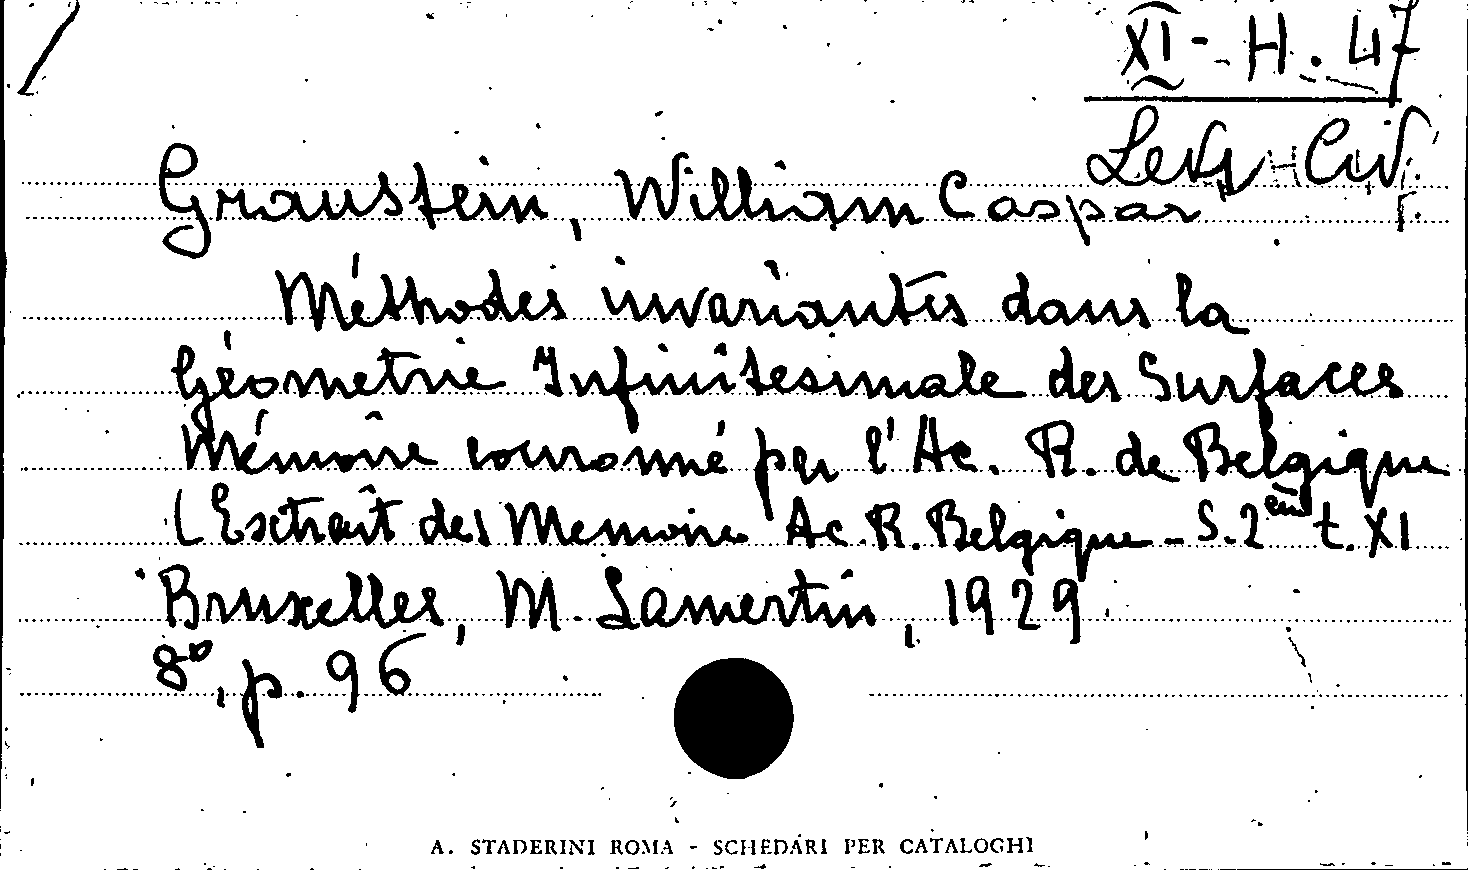 XI - H. 47
Levi-Civ.
Graustein, William Caspar
Méthodes invariantes dans la
Géometrie Infinitesimale des Surfaces
Mémoire couronné par l'Ac. R. de Belgique
(Extrait des Memoire Ac. R. Belgique - S. 2em t. XI
Bruxelles, M. Lamertin, 1929
8°, p. 96
A. STADERINI ROMA - SCHEDARI PER CATALOGHI